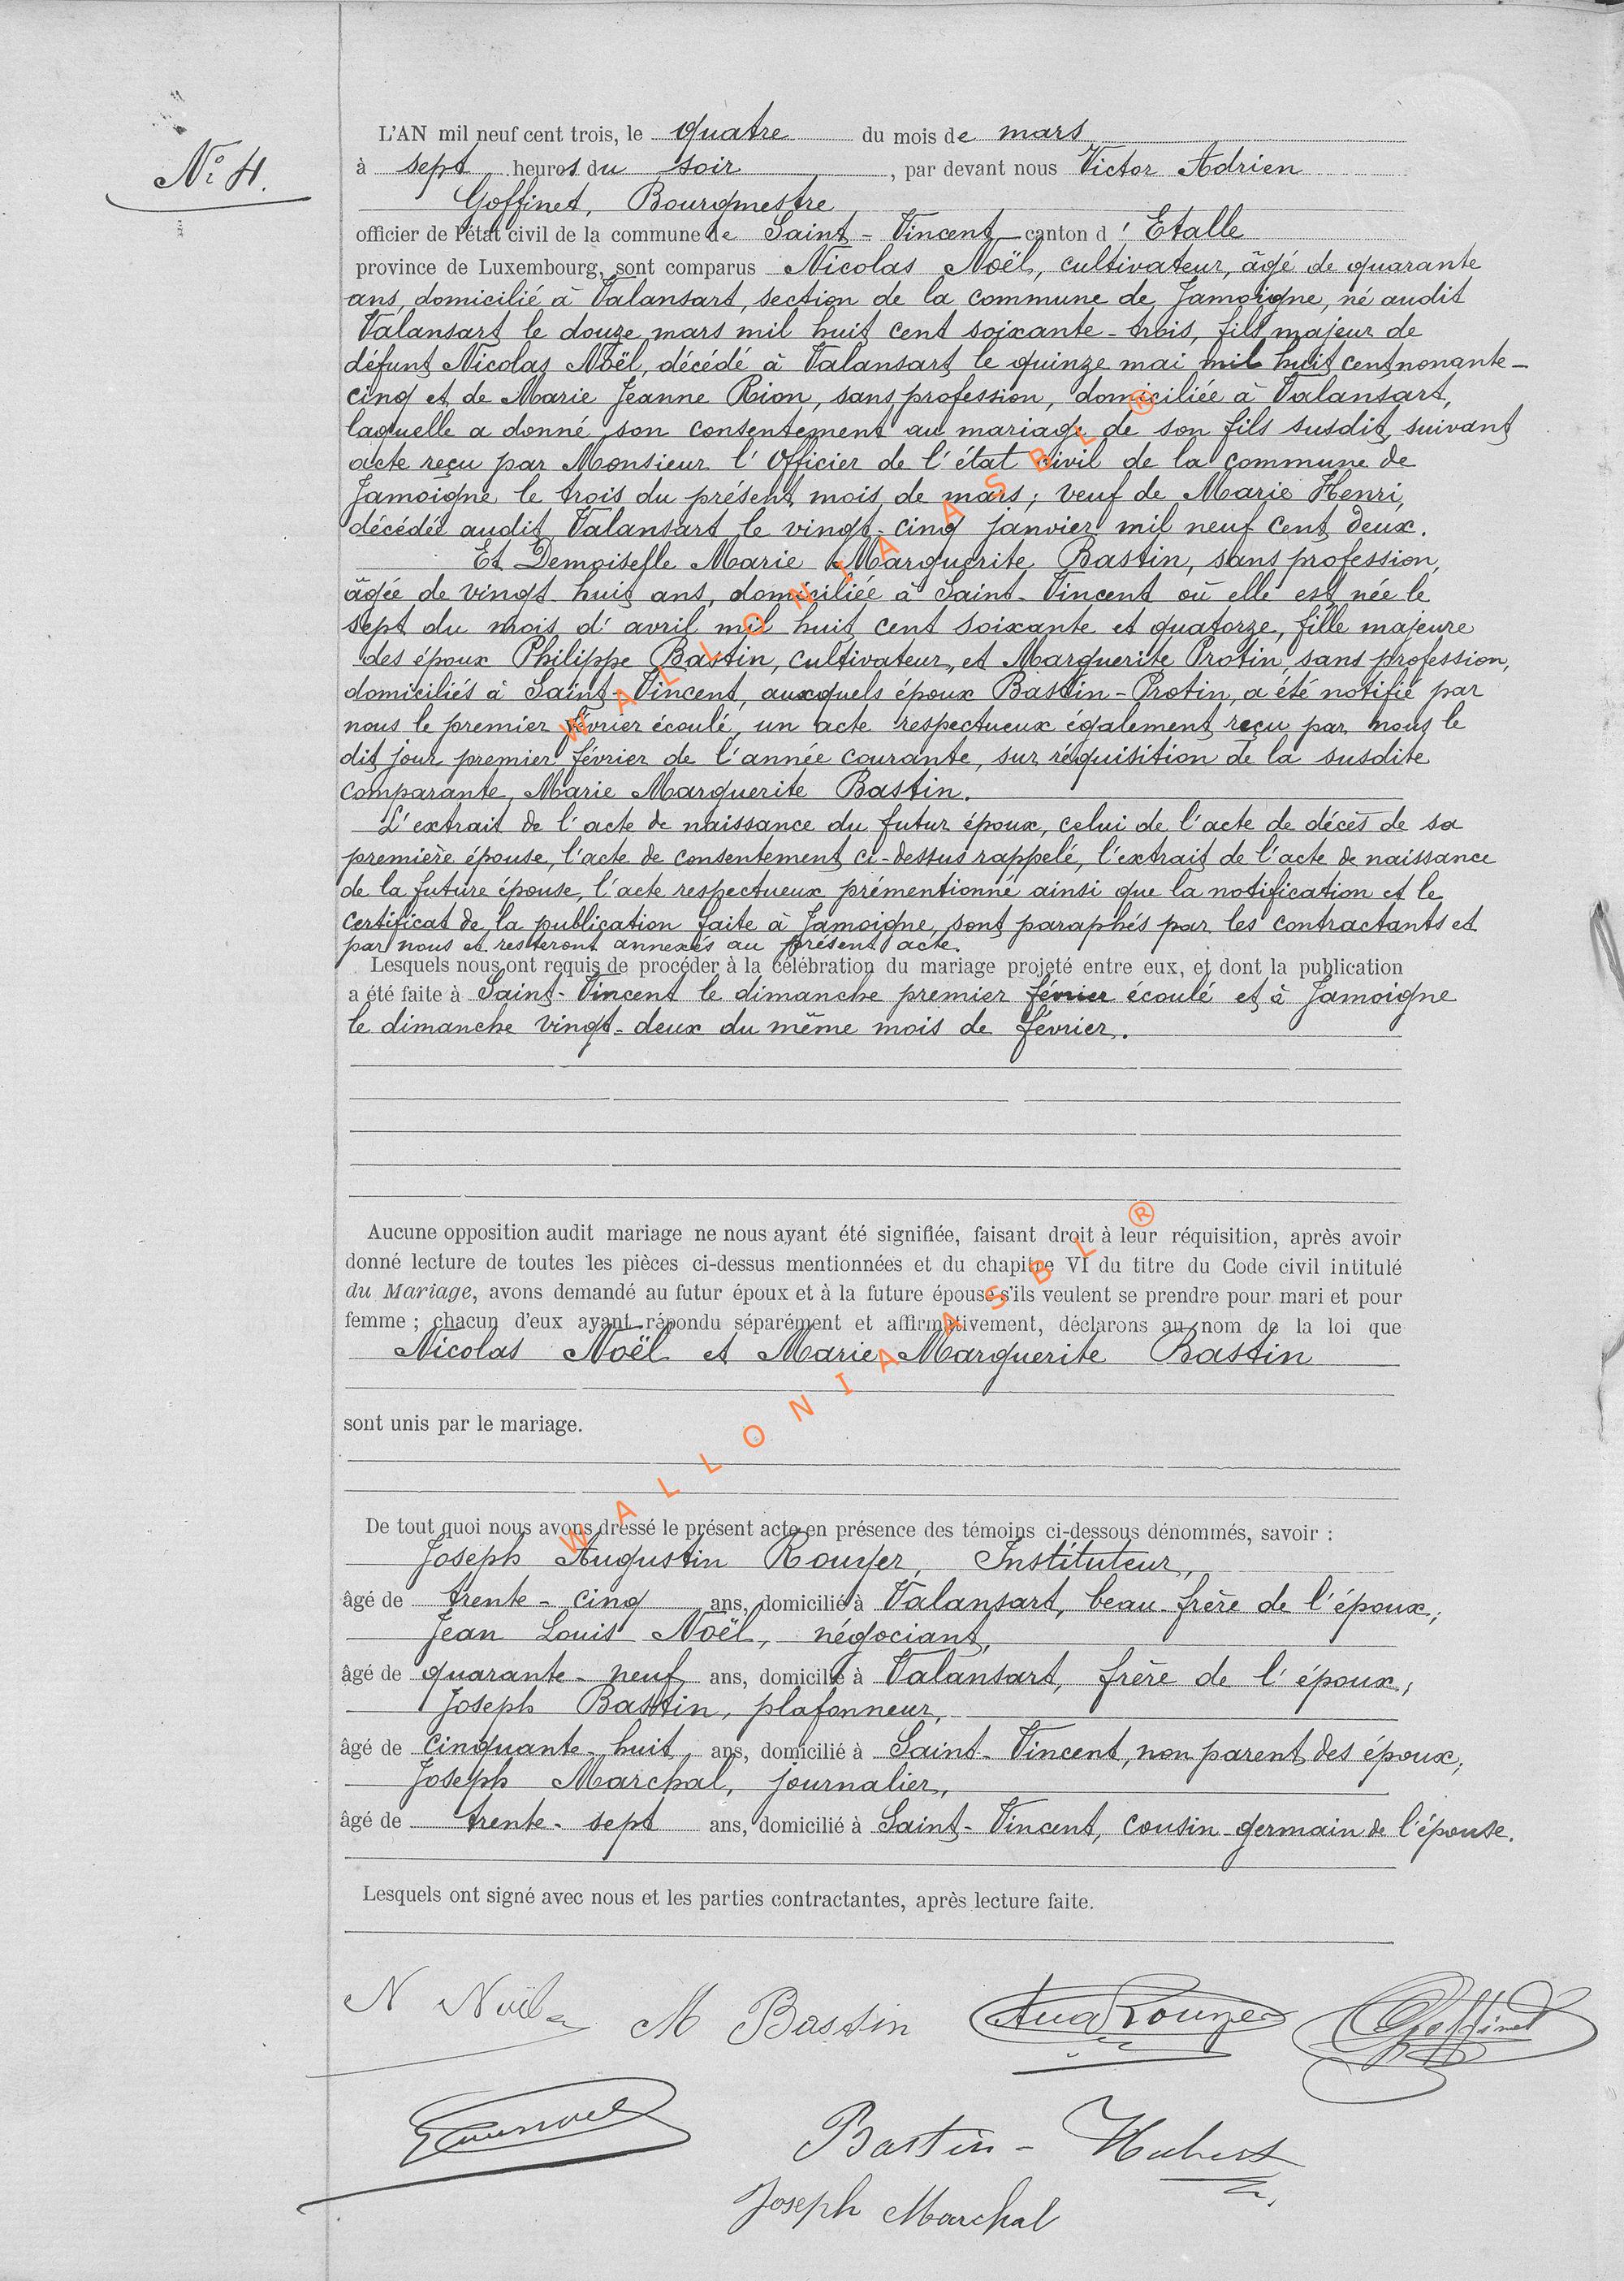 N° 4.
L'AN mil neuf cent trois, le quatre du mois de mars
à sept heures du soir, par devant nous Victor Adrien
Goffinet, Bourgmestre
officier de l'état civil de la commune de Saint-Vincent canton d'Etalle
province de Luxembourg, sont comparus Nicolas Noël, cultivateur, âgé de quarante
ans, domicilié à Valansart, section de la commune de Jamoigne, né audit
Valansart le douze mars mil huit cent soixante-trois, fils majeur de
défunt Nicolas Noël, décédé à Valansart le quinze mai mil huit cent nonante-
cinq et de Marie Jeanne Rion, sans profession, domiciliée à Valansart,
laquelle a donné son consentement au mariage de son fils susdit, suivant
acte reçu par Monsieur l'Officier de l'état civil de la commune de
Jamoigne le trois du présent mois de mars; veuf de Marie Henri,
décédée audit Valansart le vingt-cinq janvier mil neuf cent deux.
Et Demoiselle Marie Marguerite Bastin, sans profession,
âgée de vingt-huit ans, domiciliée à Saint-Vincent où elle est née le
sept du mois d'avril mil huit cent soixante et quatorze, fille majeure
des époux Philippe Bastin, cultivateur, et Marguerite Protin sans profession,
domiciliés à Saint-Vincent, auxquels époux Bastin-Protin, a été notifié par
nous le premier février écoulé, un acte respectueux également reçu par nous le
dit jour premier février de l'année courante, sur réquisition de la susdite
comparante, Marie Marguerite Bastin.
L'extrait de l'acte de naissance du futur époux, celui de l'acte de décès de sa
première épouse, l'acte de consentement ci-dessus rappelé, l'extrait de l'acte de naissance
de la future épouse, l'acte respectueux prémentionné ainsi que la notification et le
certificat de la publication faite à Jamoigne, sont paraphés par les contractants et
par nous et resteront annexés au présent acte.
Lesquels nous ont requis de procéder à la célébration du mariage projeté entre eux, et dont la publication
a été faite à Saint-Vincent le dimanche premier février écoulé et à Jamoigne
le dimanche vingt-deux du même mois de février.
Aucune opposition audit mariage ne nous ayant été signifiée, faisant droit à leur réquisition, après avoir
donné lecture de toutes les pièces ci-dessus mentionnées et du chapitre VI du titre du Code civil intitulé
du Mariage, avons demandé au futur époux et à la future épouse s'ils veulent se prendre pour mari et pour
femme ; chacun d'eux ayant répondu séparément et affirmativement, déclarons au nom de la loi que
Nicolas Noël et Marie Marguerite Bastin
sont unis par le mariage.
De tout quoi nous avons dressé le présent acte en présence des témoins ci-dessous dénommés, savoir :
Joseph Augustin Rouyer, Instituteur,
âgé de trente-cinq ans, domicilié à Valansart, beau-frère de l'époux;
Jean Louis Noël, négociant,
âgé de quarante-neuf ans, domicilié à Valansart, frère de l'époux;
Joseph Bastin, plafonneur,
âgé de cinquante-huit ans, domicilié à Saint-Vincent, non parent des époux;
Joseph Marchal, journalier,
âgé de trente-sept ans, domicilié à Saint-Vincent, cousin-germain de l'épouse.
Lesquels ont signé avec nous et les parties contractantes, après lecture faite.
N Noël M Bastin Aug Rouyer Goffinet
Bastin-Hubert
Joseph Marchal
WALLONIA ASBL ®
WALLONIA ASBL ®